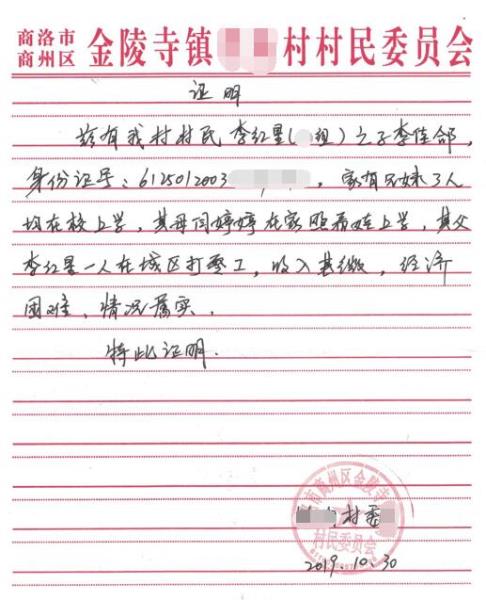 商洛市
商州区 金陵寺镇 村村民委员会
证明
兹有我村村民李红星( 组)之子李佳郃,
身份证号:6125012003 , 家有兄妹3人
均在校上学,其母闫婷婷在家照看娃上学,其父
李红星一人在城区打零工,收入甚微,经济
困难,情况属实.
特此证明.
市商州区金陵寺
村委
村民委员会
2019.10.30